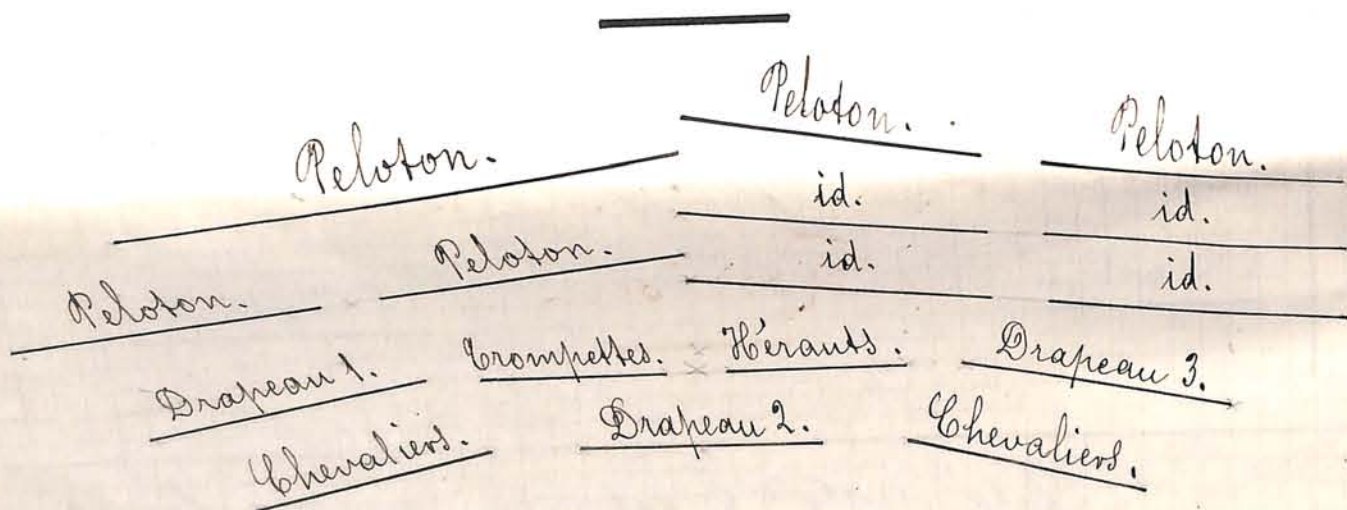 Peloton. Peloton. Peloton.
id. id.
Peloton. Peloton. id. id.
Drapeau 1. Trompettes. Hérauts. Drapeau 3.
Chevaliers. Drapeau 2. Chevaliers.